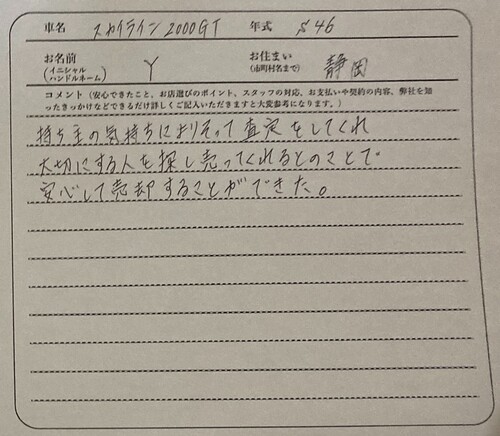 車名 スカイライン2000GT 年式 S46
お名前 (イニシャル ハンドルネーム) Y お住まい (市町村名まで) 静岡
コメント（安心できたこと、お店選びのポイント、スタッフの対応、お支払いや契約の内容、弊社を知
ったきっかけなどできるだけ詳しくご記入いただきますと大変参考になります。）
持ち主の気持ちによりそって査定をしてくれ
大切にする人を探し売ってくれるとのことで
安心して売却することができた。